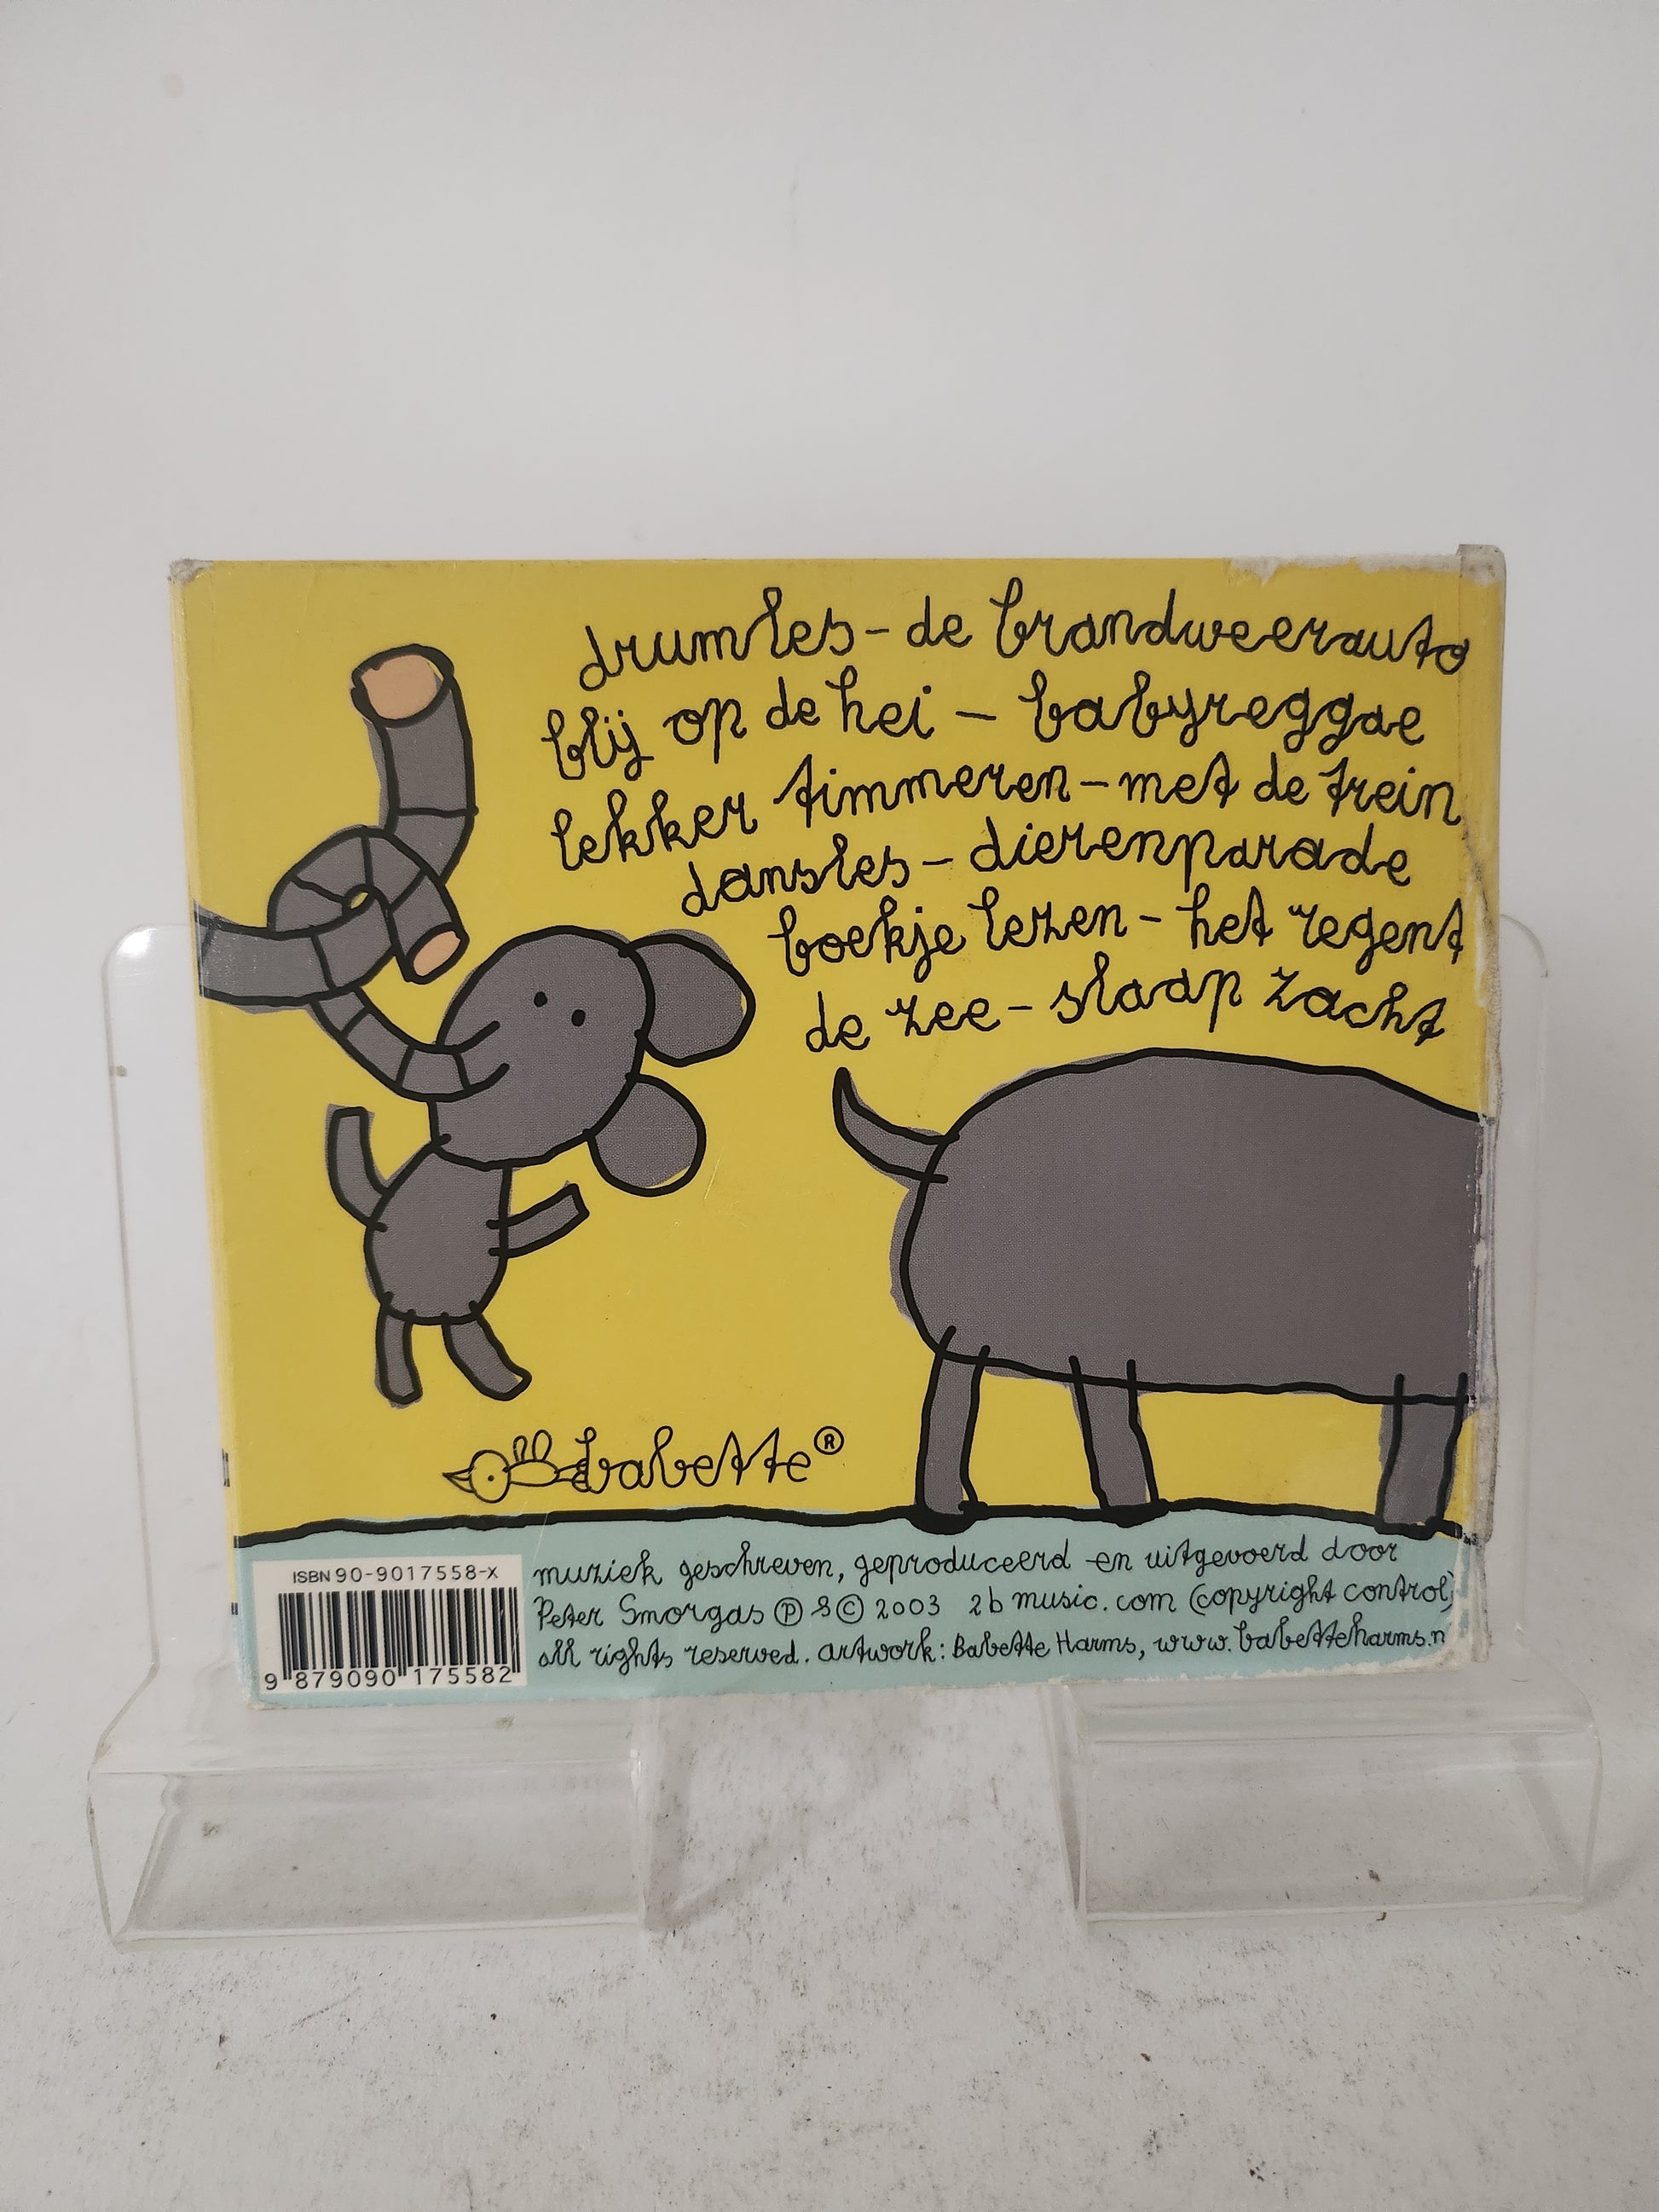 drumles - de brandweerauto
blij op de hei - babyreggae
lekker timmeren - met de trein
dansles - dierenparade
boekje lezen - het regent
de zee - slaap zacht
babette®
ISBN 90-9017558-X
9 879090 175582
muziek geschreven, geproduceerd en uitgevoerd door
Peter Smorgas ℗ & © 2003 2b music.com (copyright control)
all rights reserved. artwork: Babette Harms, www.babetteharms.n